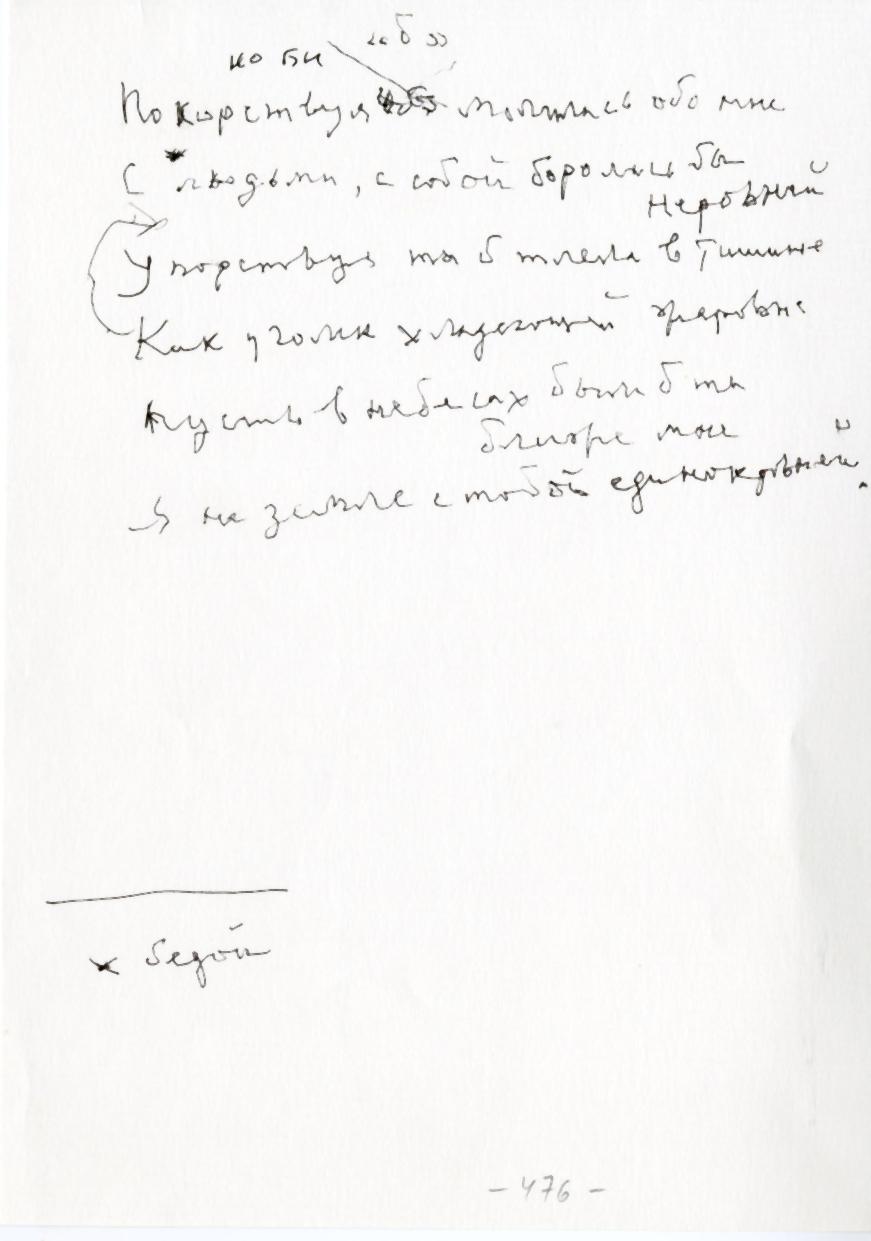 но бы «б»
Покорствуя молилась обо мне
С людьми, с собой боролась бы
неровный
Упорствуя ты б тлела в тишине
Как уголик хладеющей жаровне
пусть в небесах был б ты
ближе мне
Я на земле с тобой единокровней.
x бедой
- 476 -